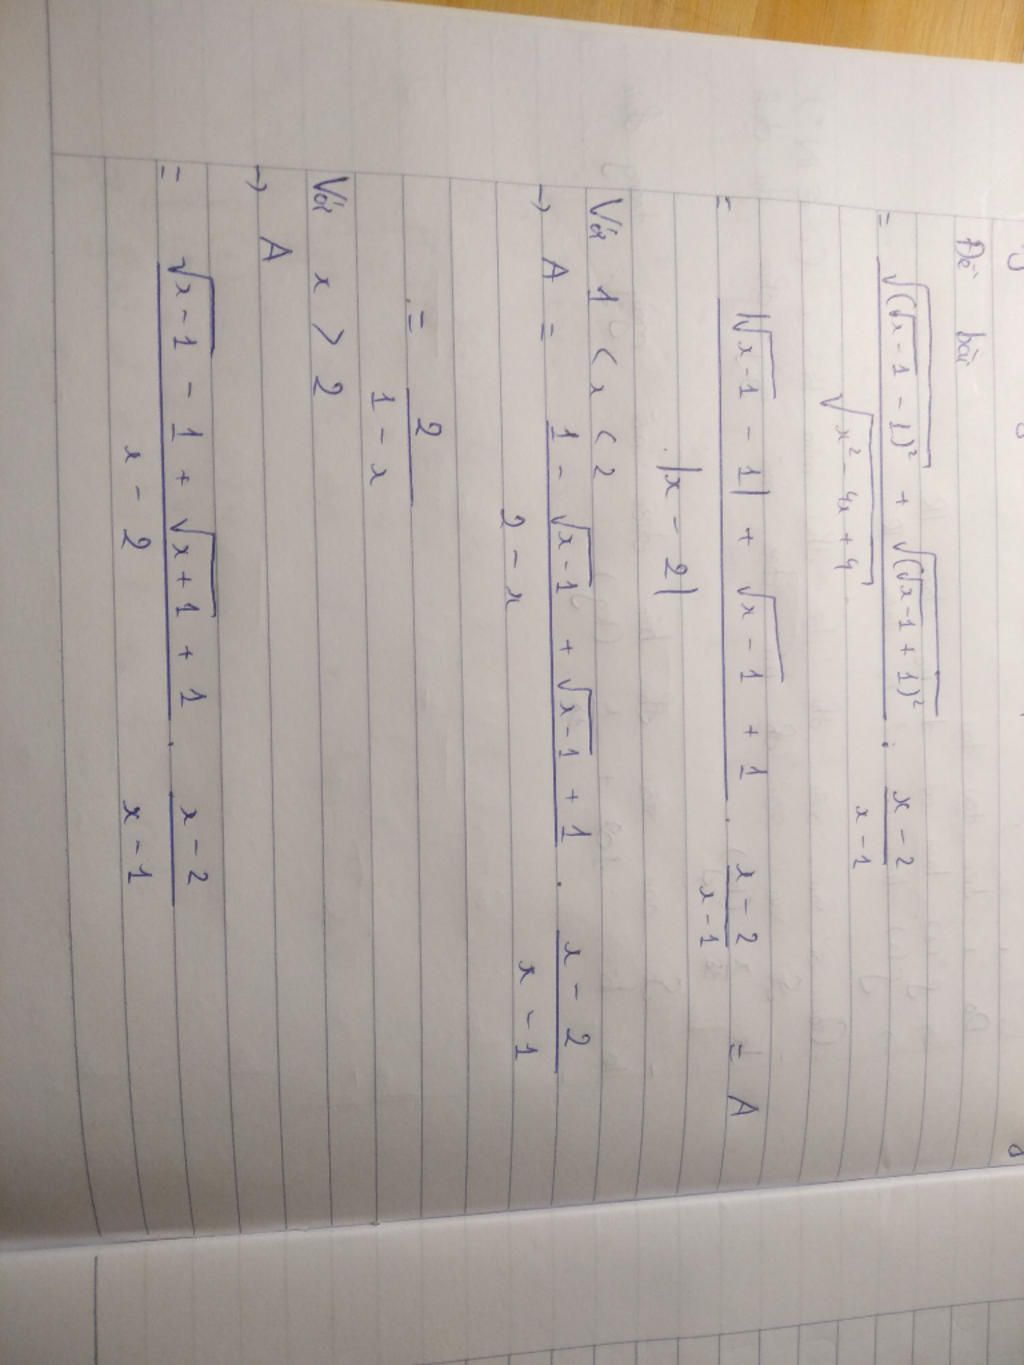 Đề bài
= √(√x-1 - 1)² + √(√x-1 + 1)² . x - 2
√x² - 4x + 4 x - 1
= |√x-1 - 1| + √x - 1 + 1 . x - 2 = A
|x - 2| x - 1
Với 1 < x < 2
→ A = 1 - √x-1 + √x-1 + 1 . x - 2
2 - x x - 1
= 2
1 - x
Với x > 2
→ A
= √x-1 - 1 + √x+1 + 1 . x - 2
x - 2 x - 1